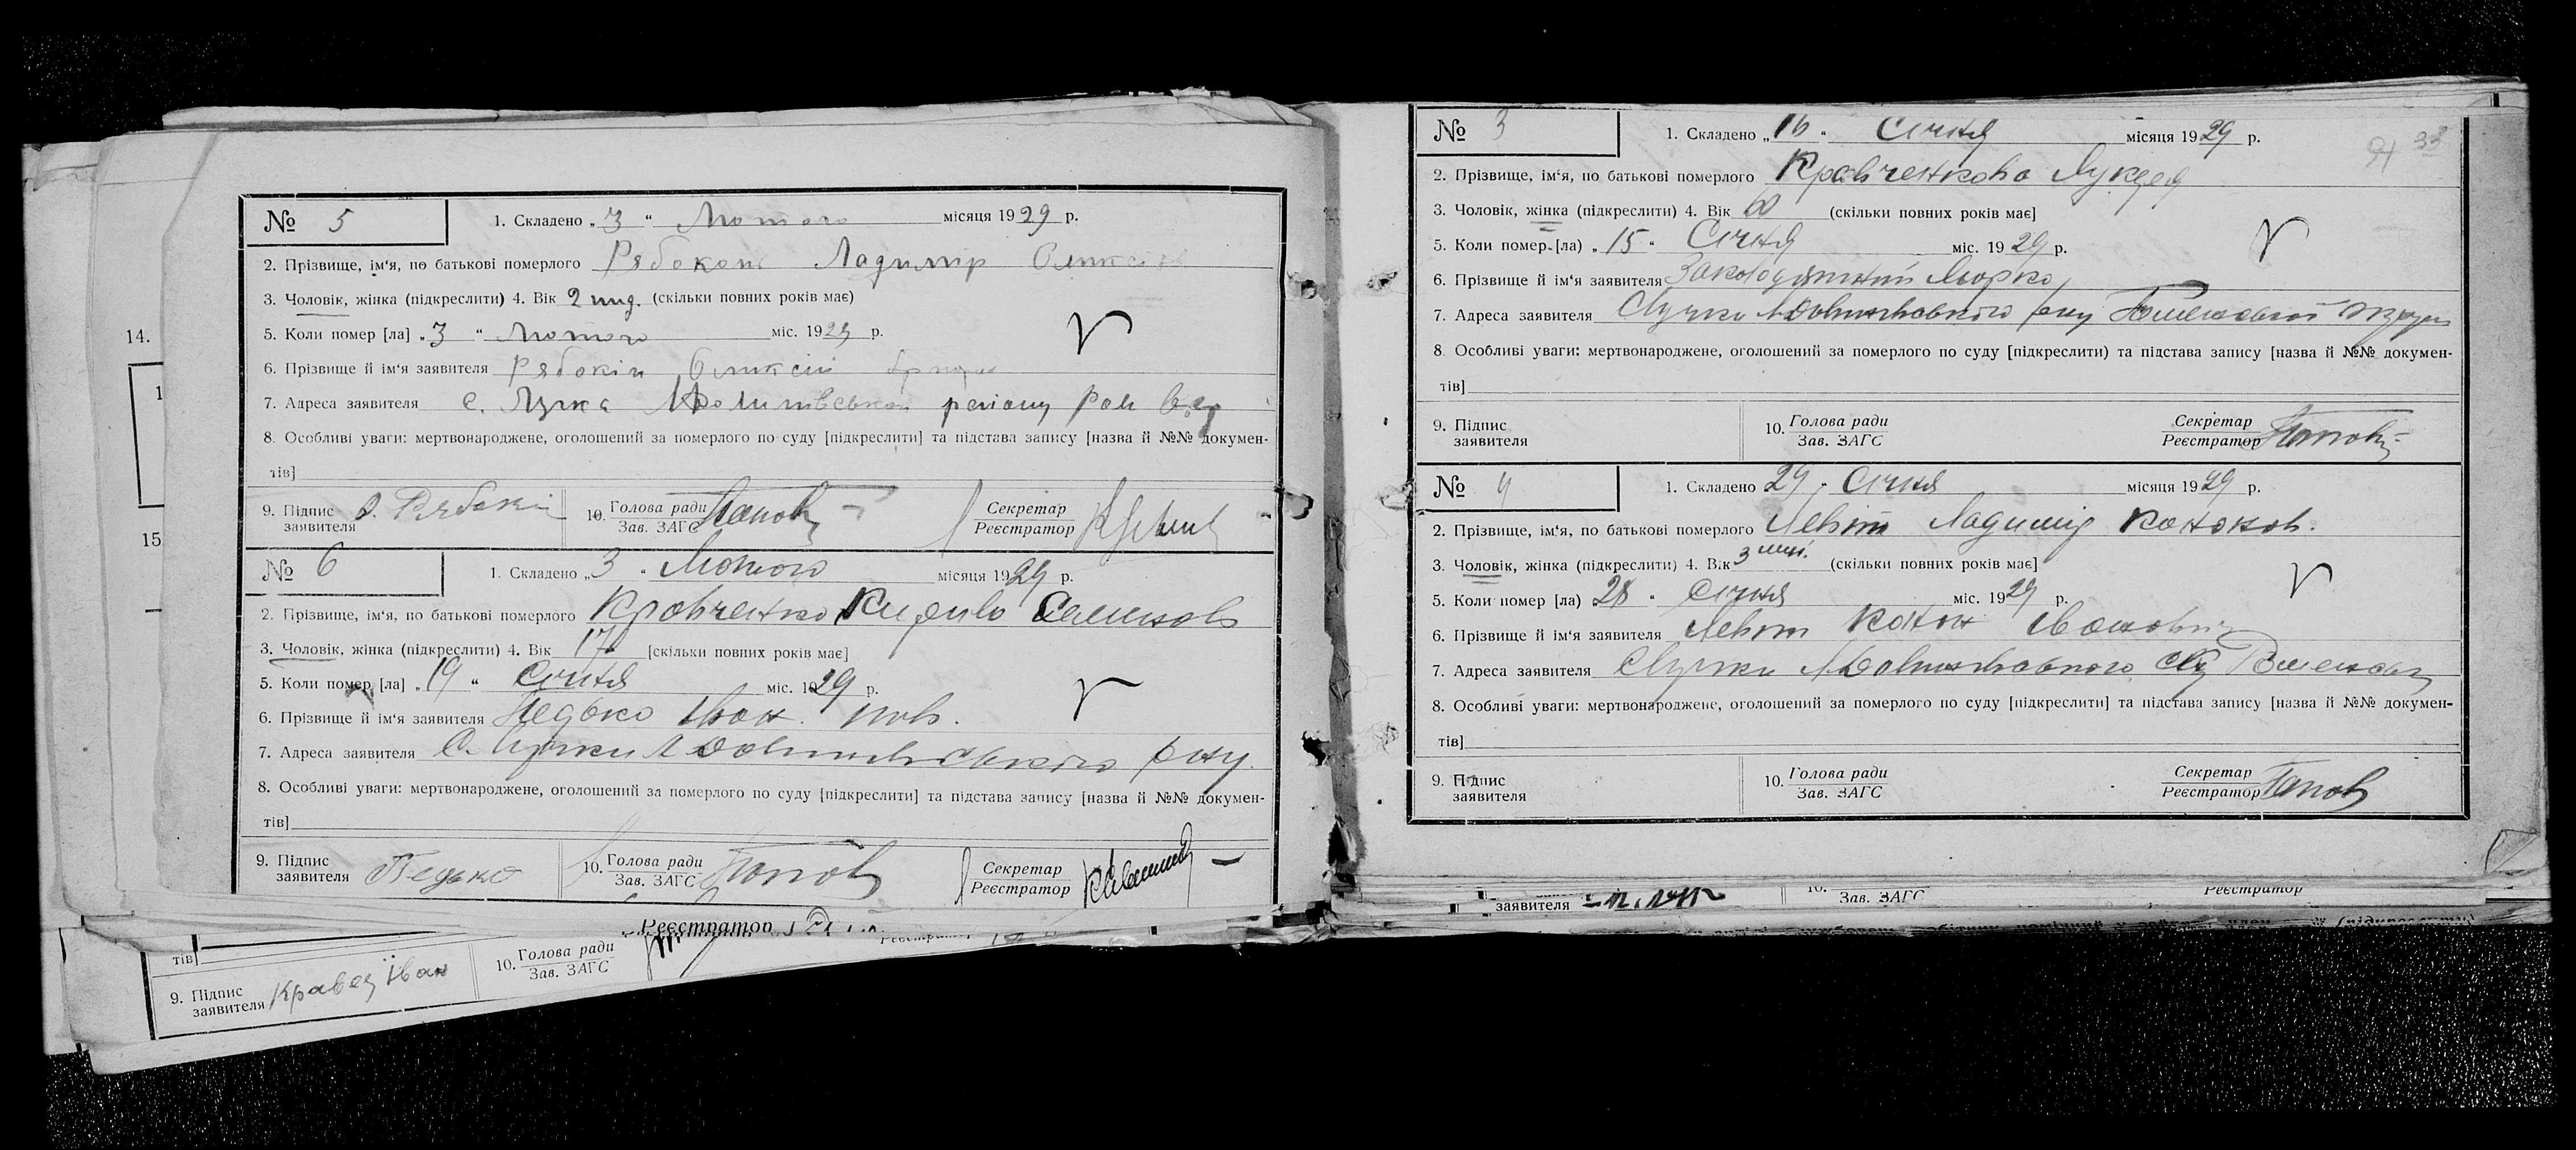 14.
1
15
№ 5
1. Складено „3“ Лютого місяця 1929 р.
2. Прізвище, ім‘я, по батькові померлого Рябоконь Ладимір Оликсієв
3. Чоловік, жінка (підкреслити) 4. Вік 2 (скільки повних років має)
5. Коли помер [ла] „3“ Лютого міс. 1929 р.
6. Прізвище й ім‘я заявителя Рябокін Оликсій
7. Адреса заявителя с. Лучка
8. Особливі уваги: мертвонароджене, оголошений за померлого по суду [підкреслити] та підстава запису [назва й №№ докумен-
тів]
9. Підпис заявителя О. Рябокін 10. Голова ради Зав. ЗАГС Попов Секретар Реєстратор
№ 6
1. Складено „3“ Лютого місяця 1929 р.
2. Прізвище, ім‘я, по батькові померлого Кровченко Кирило Семинов
3. Чоловік, жінка (підкреслити) 4. Вік 17 [скільки повних років має]
5. Коли помер [ла] „19“ Січня міс. 1929 р.
6. Прізвище й ім‘я заявителя Педько Іван
7. Адреса заявителя С. Лучки
8. Особливі уваги: мертвонароджене, оголошений за померлого по суду [підкреслити] та підстава запису [назва й №№ докумен-
тів]
9. Підпис заявителя Педько 10. Голова ради Зав. ЗАГС Попов Секретар Реєстратор
Реєстратор
тів]
9. Підпис заявителя Кравец Іван 10. Голова ради Зав. ЗАГС
№ 3
1. Складено „16“ Січня місяця 1929 р.
33
2. Прізвище, ім‘я, по батькові померлого Кравченкова Лукея
3. Чоловік, жінка (підкреслити) 4. Вік 60 (скільки повних років має]
5. Коли помер [ла) „15“ Січня міс. 1929 р.
6. Прізвище й ім‘я заявителя Марко
7. Адреса заявителя Лучки
8. Особливі уваги: мертвонароджене, оголошений за померлого по суду [підкреслити) та підстава запису [назва й №№ докумен-
тів]
9. Підпис заявителя 10. Голова ради Зав. ЗАГС Секретар Реєстратор Попов
№ 4
1. Складено 29 „ Січня місяця 1929 р.
2. Прізвище, ім‘я, по батькові померлого Левіт Ладимір Кононов.
3. Чоловік, жінка (підкреслити) 4. Вік 3 (скільки повних років має]
5. Коли помер [ла) 28 “ Січня міс. 1929 р.
6. Прізвище й ім‘я заявителя Левіт Конон Іванович
7. Адреса заявителя Лучки
8. Особливі уваги: мертвонароджене, оголошений за померлого по суду [підкреслити] та підстава запису [назва й №№ докумен-
тів]
9. Підпис заявителя 10. Голова ради Зав. ЗАГС Секретар Реєстратор Попов
заявителя 10. Зав. ЗАГС Реєстратор